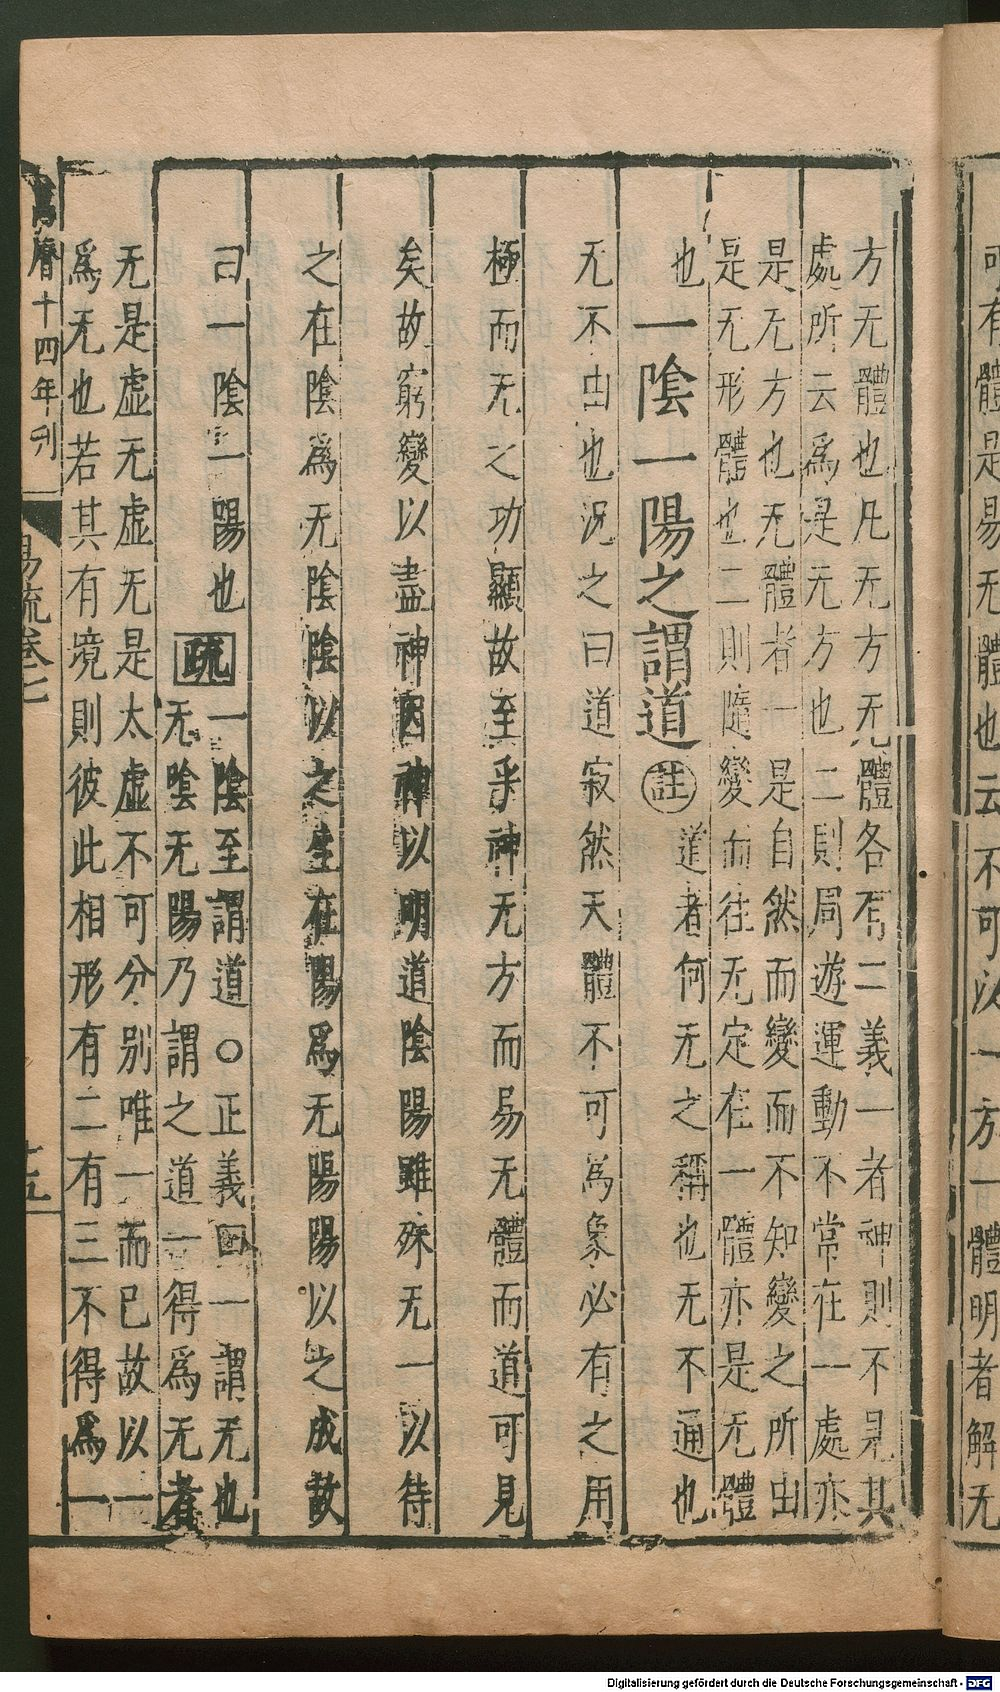 可有體是易无體也云不可以一方一體明者解无
方无體也凡无方无體各有二義一者神則不見其
處所云爲是无方也二則周遊運動不常在一處亦
是无方也无體者一是自然而變而不知變之所由
是无形體也二則隨變而往无定在一體亦是无體
也 一陰一陽之謂道 註 道者何无之稱也无不通也
无不由也況之曰道寂然天體不可爲象必有之用
極而无之功顯故至乎神无方而易无體而道可見
矣故窮變以盡神因神以明道陰陽雖殊无一以待
之在陰爲无陰陰以之生在陽爲无陽陽以之成故
曰一陰一陽也 疏 一陰至謂道○正義曰一謂无也
无陰无陽乃謂之道一得爲无者
无是虛无虛无是太虛不可分別唯一而已故以一
爲无也若其有境則彼此相形有二有三不得爲一
萬曆十四年刊 易疏卷七 十五
Digitalisierung gefördert durch die Deutsche Forschungsgemeinschaft - DFG